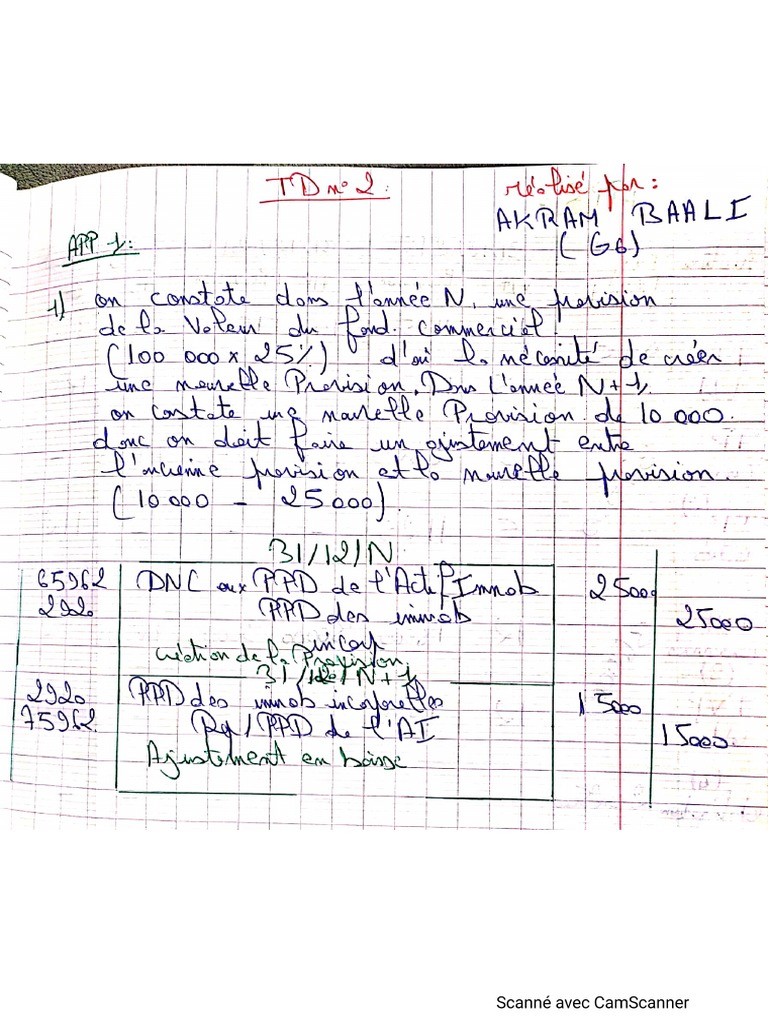 TD n° 2.
réalisé par :
AKRAM BAALI
(G6)
APP 1:
1) on constate dans l'année N, une provision
de la Valeur du fond commercial
(100 000 x 25%) d'où la nécésité de créer
une nouvelle Provision. Dans l'année N+1,
on costate une nouvelle Provision de 10 000.
donc on doit faire un ajustement entre
l'ancienne provision et la nouvelle provision.
(10 000 - 25 000).
31/12/N
65962 DNC aux PPD de l'Actif Immob 25000
2920 PPD des immob incorp 25000
création de la Provision
31/12/N+1
2920 PPD des immob incorporelles 15000
75962. Rep/PPD de l'AI 15000.
Ajustement en baisse
Scanné avec CamScanner